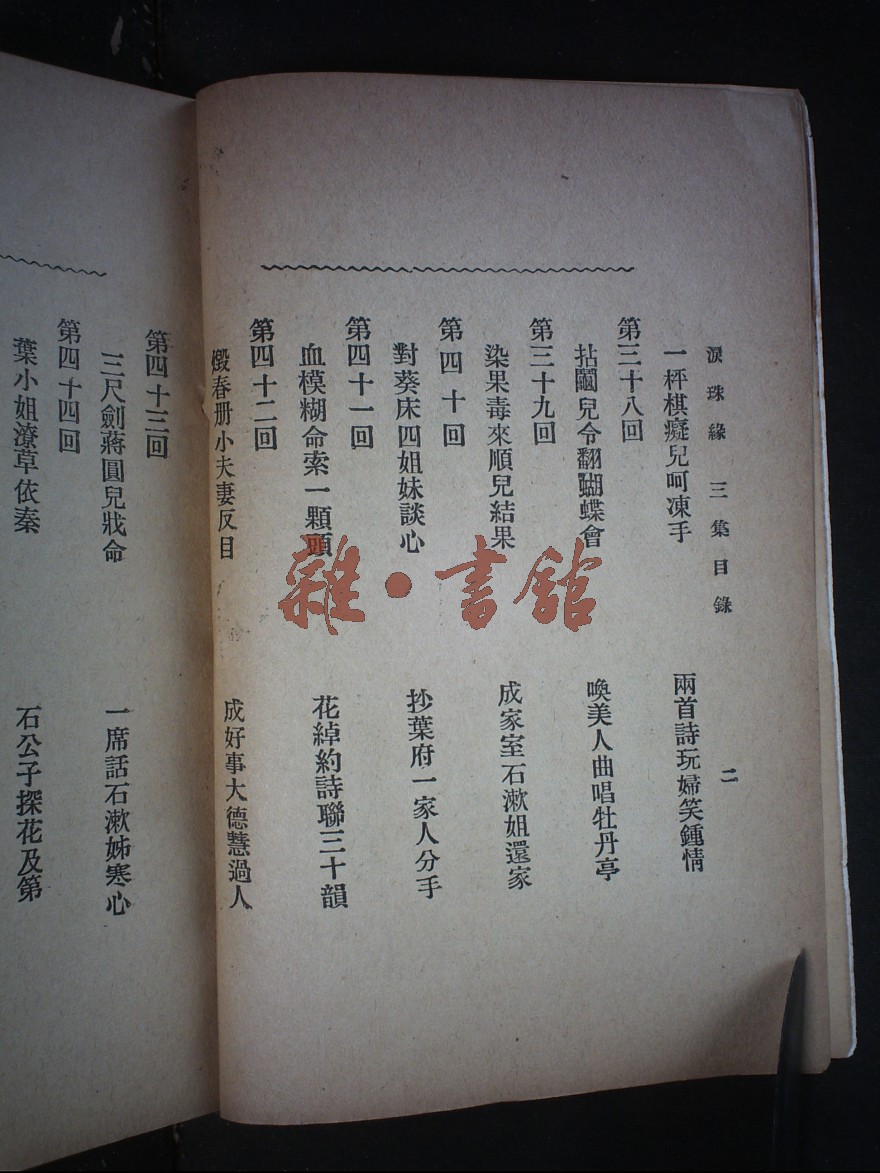 淚珠緣 三集目錄
二
一枰棋癡兒呵凍手 兩首詩玩婦笑鍾情
第三十八回
拈鬮兒令翻蝴蝶會 喚美人曲唱牡丹亭
第三十九回
染果毒來順兒結果 成家室石漱姐還家
第四十回
對葵床四姐妹談心 抄葉府一家人分手
第四十一回
血模糊命索一顆頭 花綽約詩聯三十韻
第四十二回
燬春册小夫妻反目 成好事大德慧過人
第四十三回
三尺劍蔣圓兒戕命 一席話石漱姊寒心
第四十四回
葉小姐潦草依秦 石公子探花及第
雜·書館